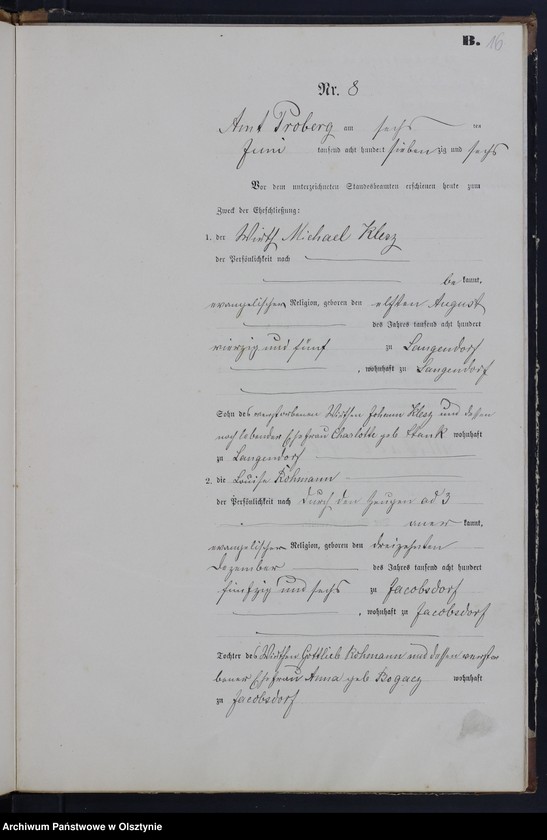 B. 16
Nr. 8
Amt Proberg am sechs ten
Juni tausend acht hundert siebenzig und sechs
Vor dem unterzeichneten Standesbeamten erschienen heute zum
Zweck der Eheschließung:
1. der Wirth Michael Klesz
der Persönlichkeit nach
bekannt,
evangelischer Religion, geboren den elften August
des Jahres tausend acht hundert
vierzig und fünf zu Langendorf
, wohnhaft zu Langendorf
Sohn des verstorbenen Wirthen Johann Klesz und dessen
noch lebender Ehefrau Charlotte geb. Stank wohnhaft
zu Langendorf
2. die Louise Kohmann
der Persönlichkeit nach durch den Zeugen ad 3
aner kannt,
evangelischer Religion, geboren den dreizehnten
Dezember des Jahres tausend acht hundert
fünfzig und sechs zu Jacobsdorf
, wohnhaft zu Jacobsdorf
Tochter des Wirthen Gottlieb Kohmann und dessen verstor
bener Ehefrau Anna geb. Bogacz wohnhaft
zu Jacobsdorf
Archiwum Państwowe w Olsztynie